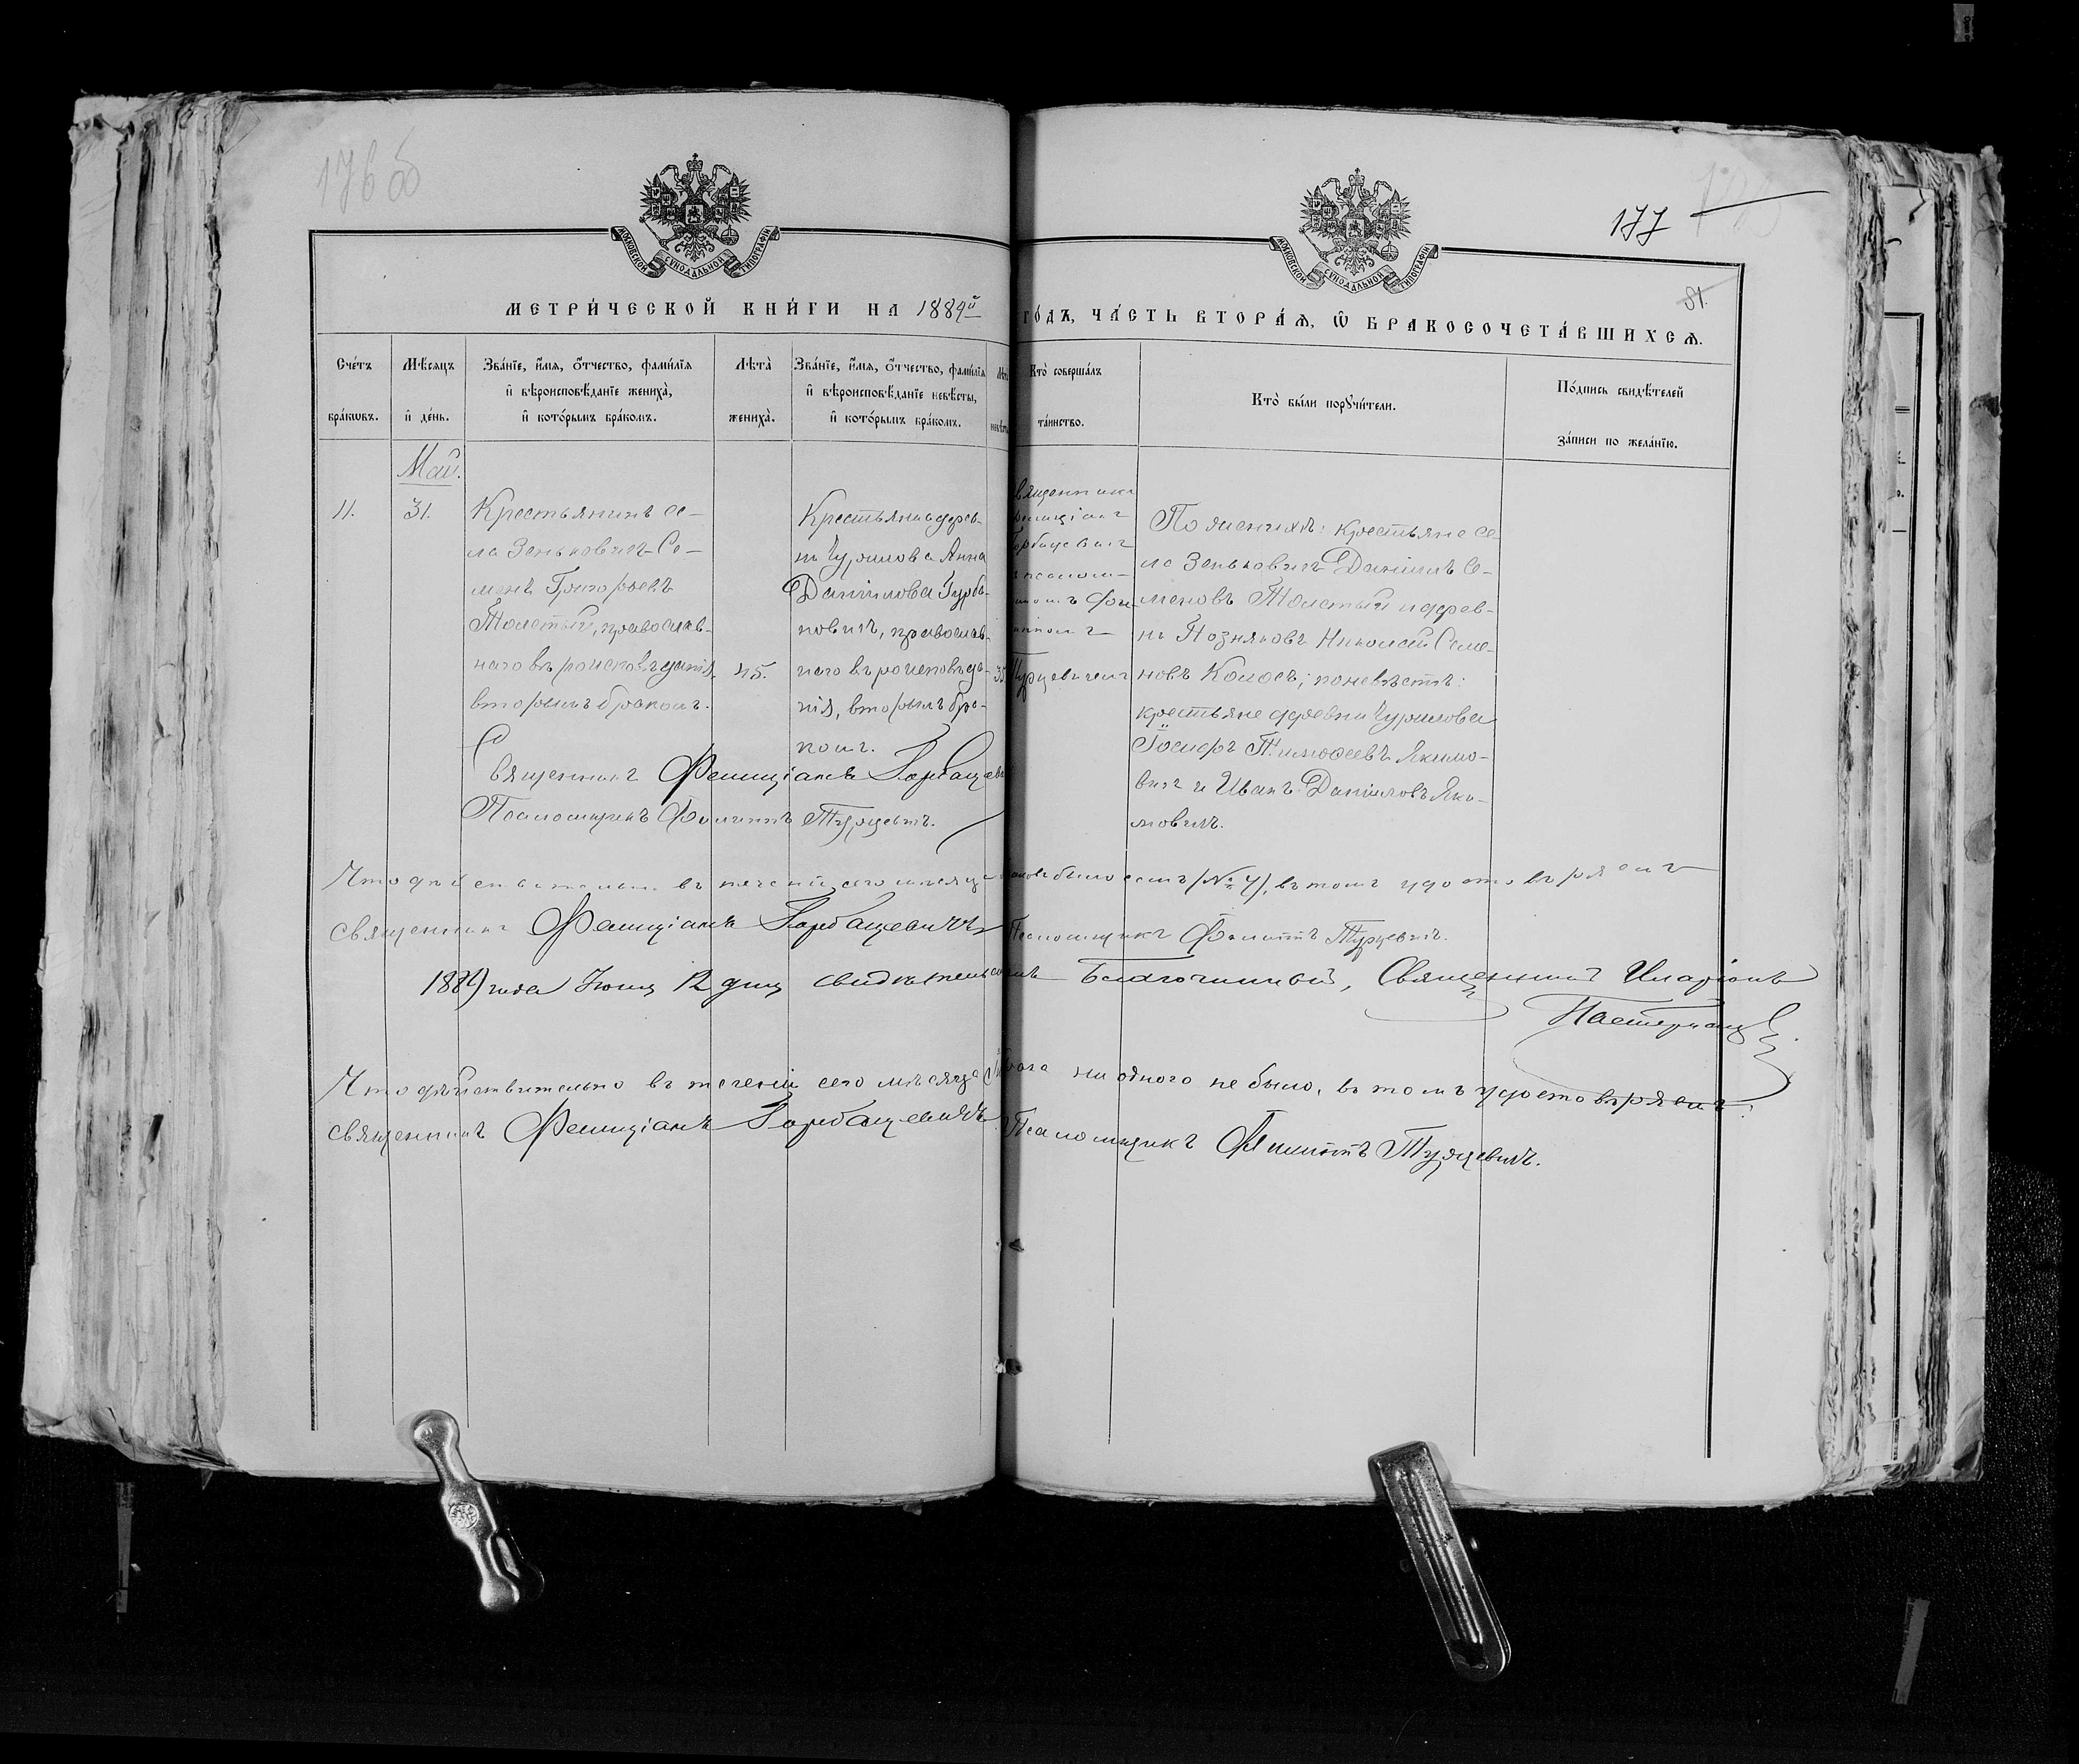 176 об
177
81.
МОСКОВСКОЙ СѴНОДАЛЬНОЙ ТИПОГРАФІИ
МОСКОВСКОЙ СѴНОДАЛЬНОЙ ТИПОГРАФІИ
МЕТРИ́ЧЕСКОЙ КНИ́ГИ НА 1889й ГО́ДЪ, ЧА́СТЬ ВТОРА́Ѧ, Ѿ БРАКОСОЧЕТА́ВШИХСѦ.
Сче́тъ бра́кѡвъ.
Мѣ́сѧцъ и҆ де́нь.
Зва́нїе, и҆́мѧ, ѻ҆́тчество, фами́лїѧ и҆ вѣроисповѣ́данїе жениха̀, и҆ кото́рымъ бра́комъ.
Лѣта̀ жениха̀.
Зва́нїе, и҆́мѧ, ѻ҆́тчество, фами́лїѧ и҆ вѣроисповѣ́данїе невѣ́сты, и҆ кото́рымъ бра́комъ.
Кто̀ соверша́лъ та́инство.
Кто̀ бы́ли порꙋчи́тели.
По́дпись свидѣ́телей за́писи по жела́нїю.
Май.
11.
31.
Крестьянинъ се-
ла Зеньковичъ Се-
менъ Григорьевъ
Толстый, православ-
наго вѣроисповѣданія,
вторымъ бракомъ.
45.
Крестьянка дерев-
ни Чурилова Анна
Данiилова Гурба-
новичъ, православ-
наго вѣроисповѣда-
нія, вторымъ бра-
комъ.
35
священникъ
Фелиціанъ
Горбацевичъ
съ псалом-
щикомъ Фи-
липпомъ
Турцевичемъ
По женихѣ: крестьяне се-
ла Зеньковичъ Даніилъ Се-
меновъ Толстый и дерев-
ни Позняковъ Николай Семе-
новъ Колосъ; по невѣстѣ:
крестьяне деревни Чурилова
Іосифъ Тимофеевъ Якимо-
вичъ и Иванъ Даниловъ Яки-
мовичъ.
Священникъ Фелиціанъ Горбацевичъ
Псаломщикъ Филиппъ Турцевичъ.
Что дѣйствительно въ теченіи сего мѣсяца браковъ было семь (№ 4), въ томъ удостовѣряемъ
священникъ Фелиціанъ Горбацевичъ Псаломщикъ Филиппъ Турцевичъ.
1889 года Іюня 12 дня свидѣтельствовалъ Благочинный, Священникъ Иларіонъ
Пастернацкій.
Что дѣйствительно въ теченіи сего мѣсяца брака ни одного не было, въ томъ удостовѣряемъ:
священникъ Фелиціанъ Горбацевичъ Псаломщикъ Филиппъ Турцевичъ.